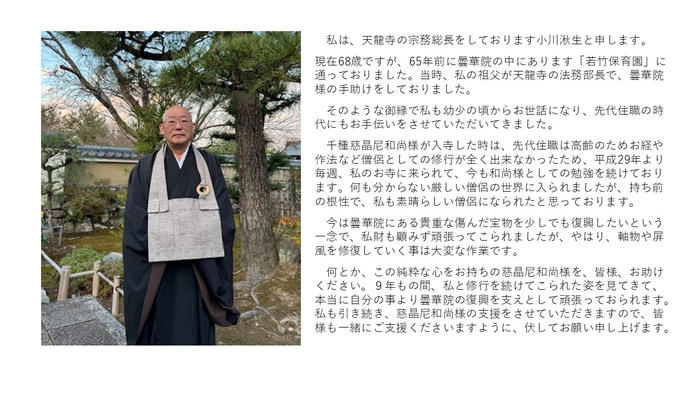 私は、天龍寺の宗務総長をしております小川湫生と申します。
現在68歳ですが、65年前に曇華院の中にあります「若竹保育園」に
通っておりました。当時、私の祖父が天龍寺の法務部長で、曇華院
様の手助けをしておりました。
そのような御縁で私も幼少の頃からお世話になり、先代住職の時
代にもお手伝いをさせていただいてきました。
千種慈晶尼和尚様が入寺した時は、先代住職は高齢のためお経や
作法など僧侶としての修行が全く出来なかったため、平成29年より
毎週、私のお寺に来られて、今も和尚様としての勉強を続けており
ます。何も分からない厳しい僧侶の世界に入られましたが、持ち前
の根性で、私も素晴らしい僧侶になられたと思っております。
今は曇華院にある貴重な傷んだ宝物を少しでも復興したいという
一念で、私財も顧みず頑張ってこられましたが、やはり、軸物や屏
風を修復していく事は大変な作業です。
何とか、この純粋な心をお持ちの慈晶尼和尚様を、皆様、お助け
ください。９年もの間、私と修行を続けてこられた姿を見てきて、
本当に自分の事より曇華院の復興を支えとして頑張っておられます。
私も引き続き、慈晶尼和尚様の支援をさせていただきますので、皆
様も一緒にご支援くださいますように、伏してお願い申し上げます。